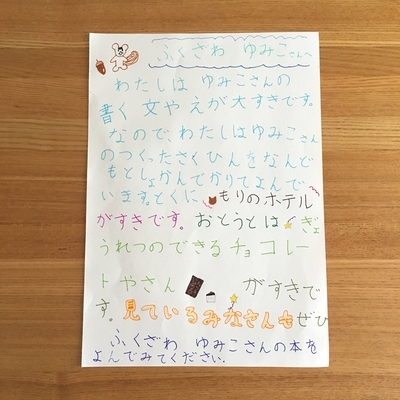 ふくざわ ゆみこさんへ
わたしは ゆみこさんの
書く 文やえが大すきです。
なのでわたしはゆみこさん
のつくったさくひんをなんど
もとしょかんでかりてよんで
います。とくに もりのホテル
がすきです。おとうとは ぎょ
うれつのできるチョコレー
トやさん がすきで
す。見ているみなさんもぜひ
ふくざわ ゆみこさんの本を
よんでみてください。